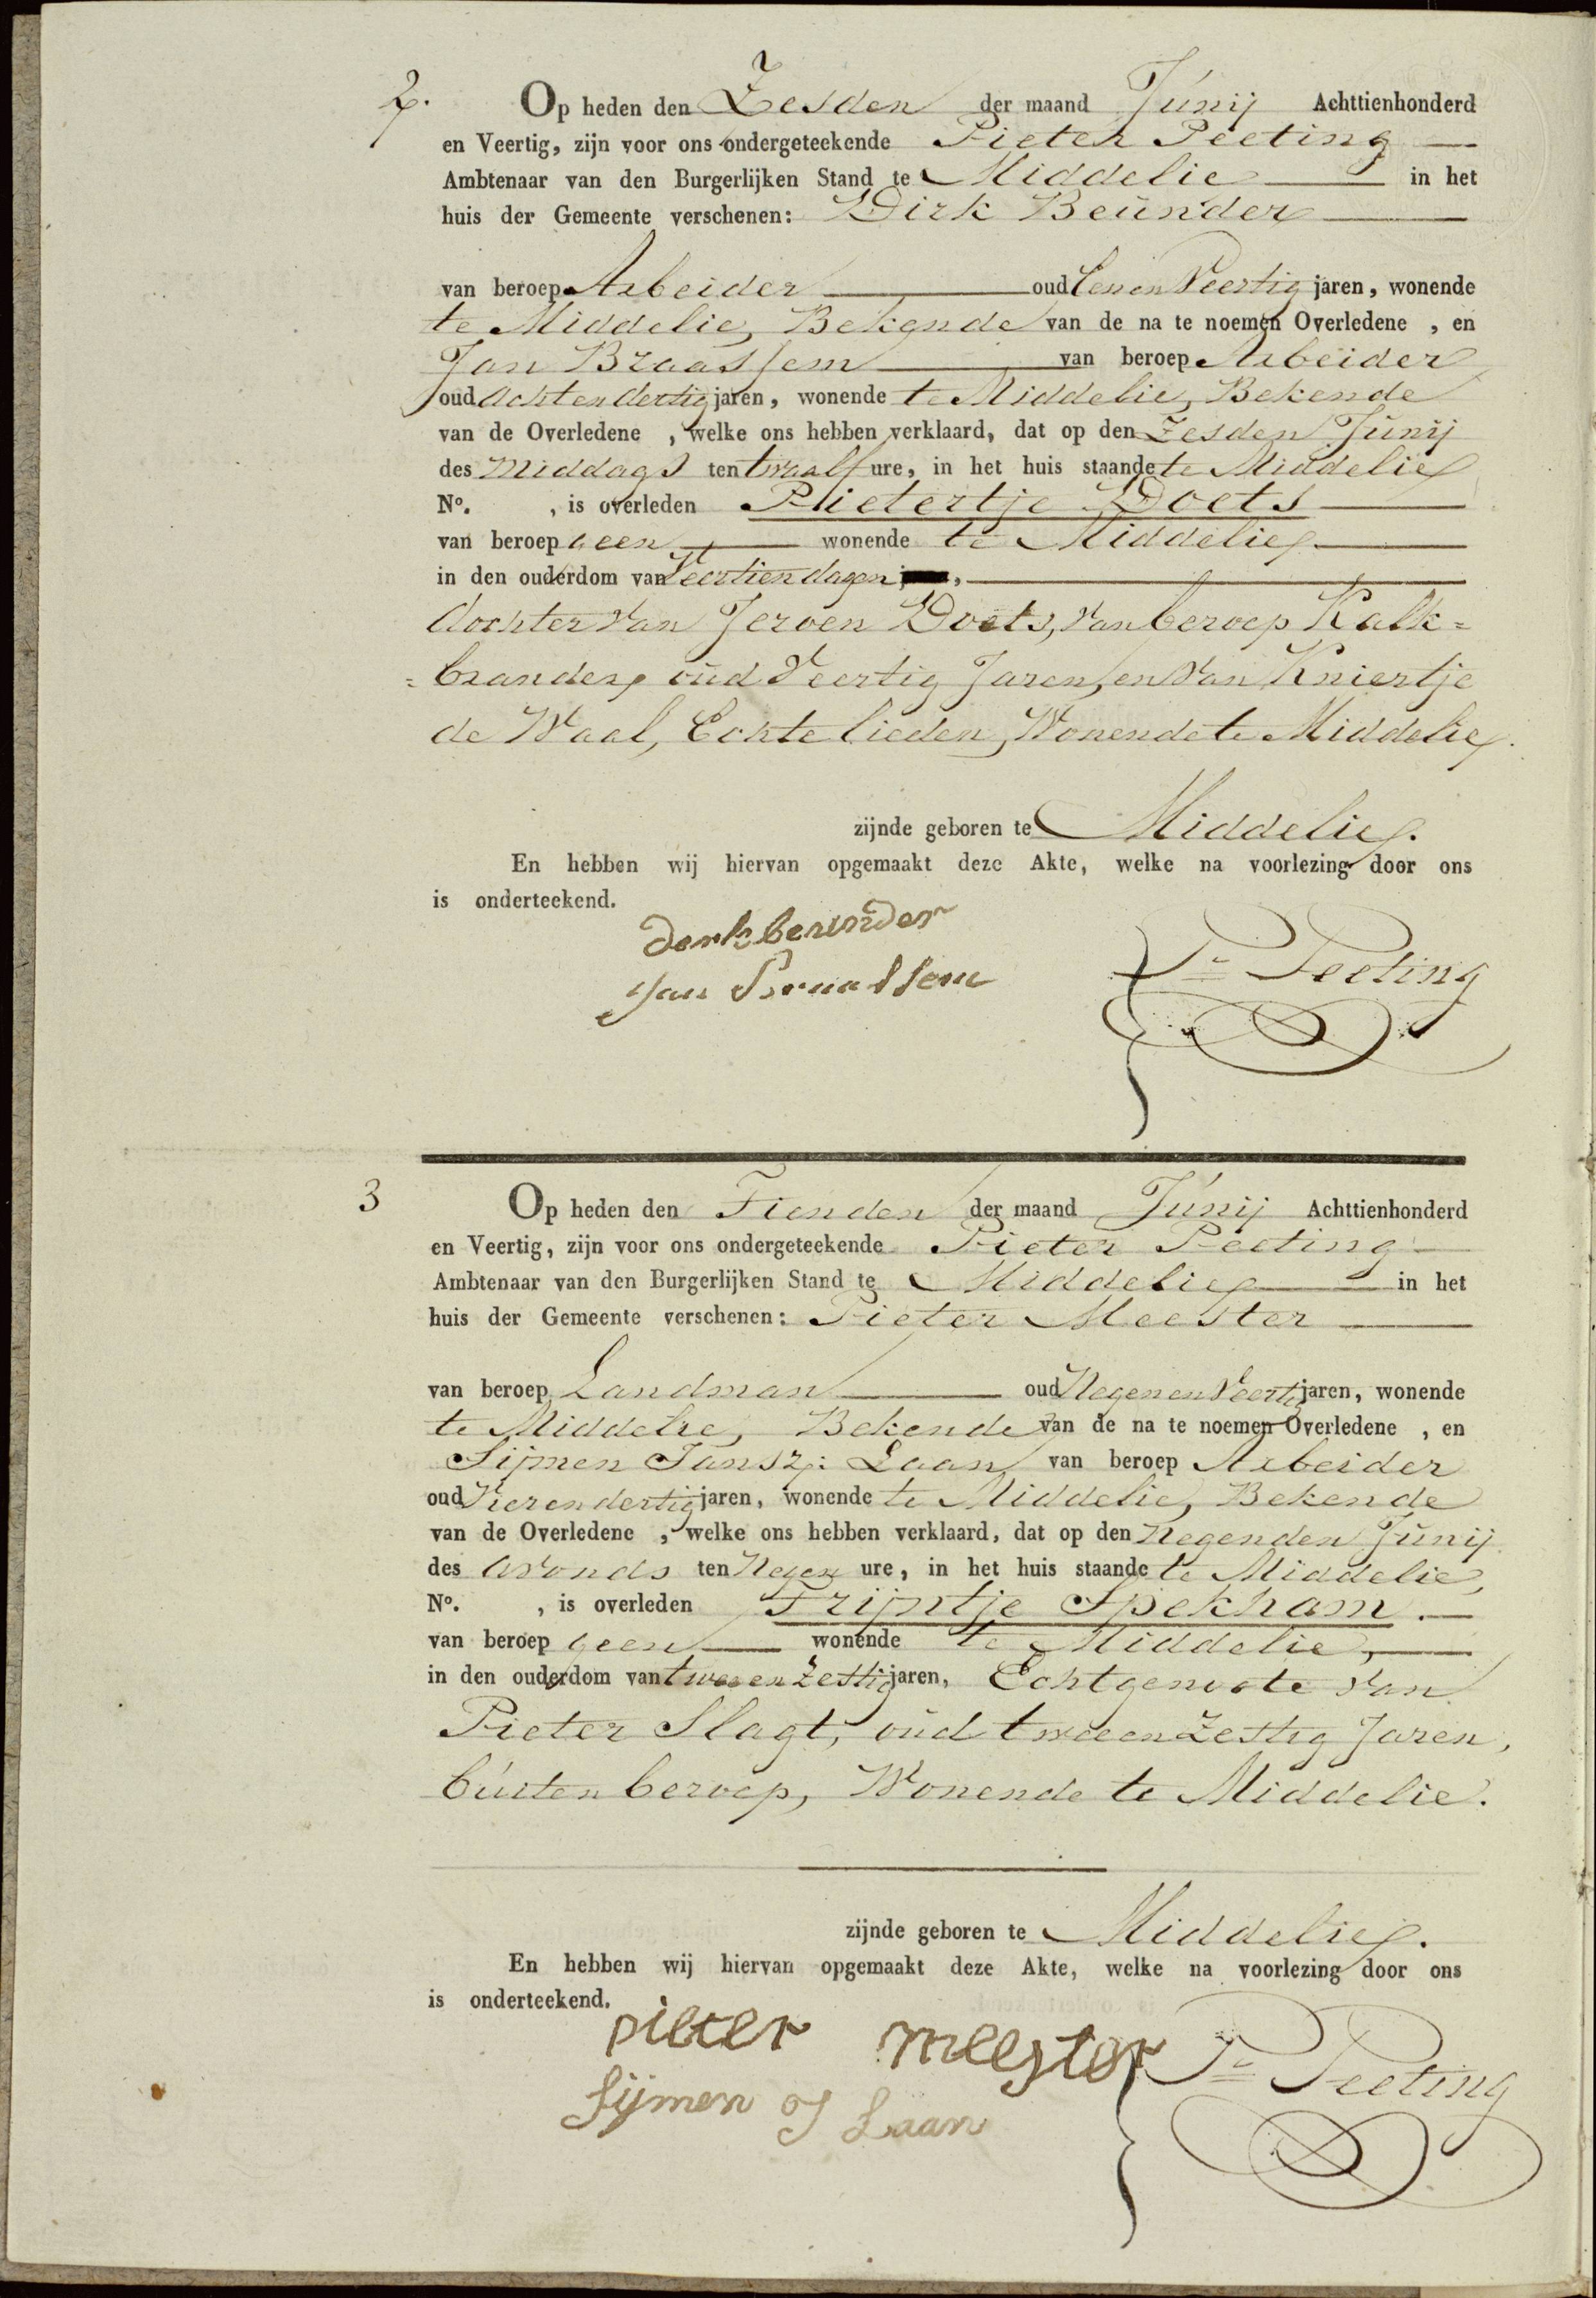 2. Op heden den Zesden der maand Junij Achttienhonderd
en Veertig, zijn voor ons ondergeteekende Pieter Peeting
Ambtenaar van den Burgerlijken Stand te Middelie in het
huis der Gemeente verschenen: Dirk Beunder
van beroep Arbeider oud Een en Veertig jaren, wonende
te Middelie, Bekende van de na te noemen Overledene , en
Jan Braassem van beroep Arbeider
oud Acht en dertig jaren, wonende te Middelie, Bekende
van de Overledene , welke ons hebben verklaard, dat op den Zesden Junij
des Middags ten twaalf ure, in het huis staande te Middelie
No. , is overleden Pietertje Doets
van beroep geen wonende te Middelie
in den ouderdom van Veertien dagen ,
dochter van Jeroen Doets, van beroep Kalk=
=brander, oud Veertig Jaren, en van Kniertje
de Waal, Echte lieden, Wonende te Middelie.
zijnde geboren te Middelie.
En hebben wij hiervan opgemaakt deze Akte, welke na voorlezing door ons
is onderteekend.
derk beunder
Jan Braassem
Pr Peeting
3 Op heden den Tienden der maand Junij Achttienhonderd
en Veertig, zijn voor ons ondergeteekende Pieter Peeting
Ambtenaar van den Burgerlijken Stand te Middelie in het
huis der Gemeente verschenen: Pieter Meester
van beroep Landman oud Negen en Veertig jaren, wonende
te Middelie, Bekende van de na te noemen Overledene , en
Sijmen Jansz: Laan van beroep Arbeider
oud Vier en dertig jaren, wonende te Middelie, Bekende
van de Overledene , welke ons hebben verklaard, dat op den Negenden Junij
des Avonds ten Negen ure, in het huis staande te Middelie,
No. , is overleden Trijntje Spekham.
van beroep geen wonende te Middelie,
in den ouderdom van twee en Zestig jaren, Echtgenoote van
Pieter Slagt, oud twee en Zestig Jaren,
buiten beroep, Wonende te Middelie.
zijnde geboren te Middelie.
En hebben wij hiervan opgemaakt deze Akte, welke na voorlezing door ons
is onderteekend.
pieter meester
Sijmen J Laan
Pr Peeting